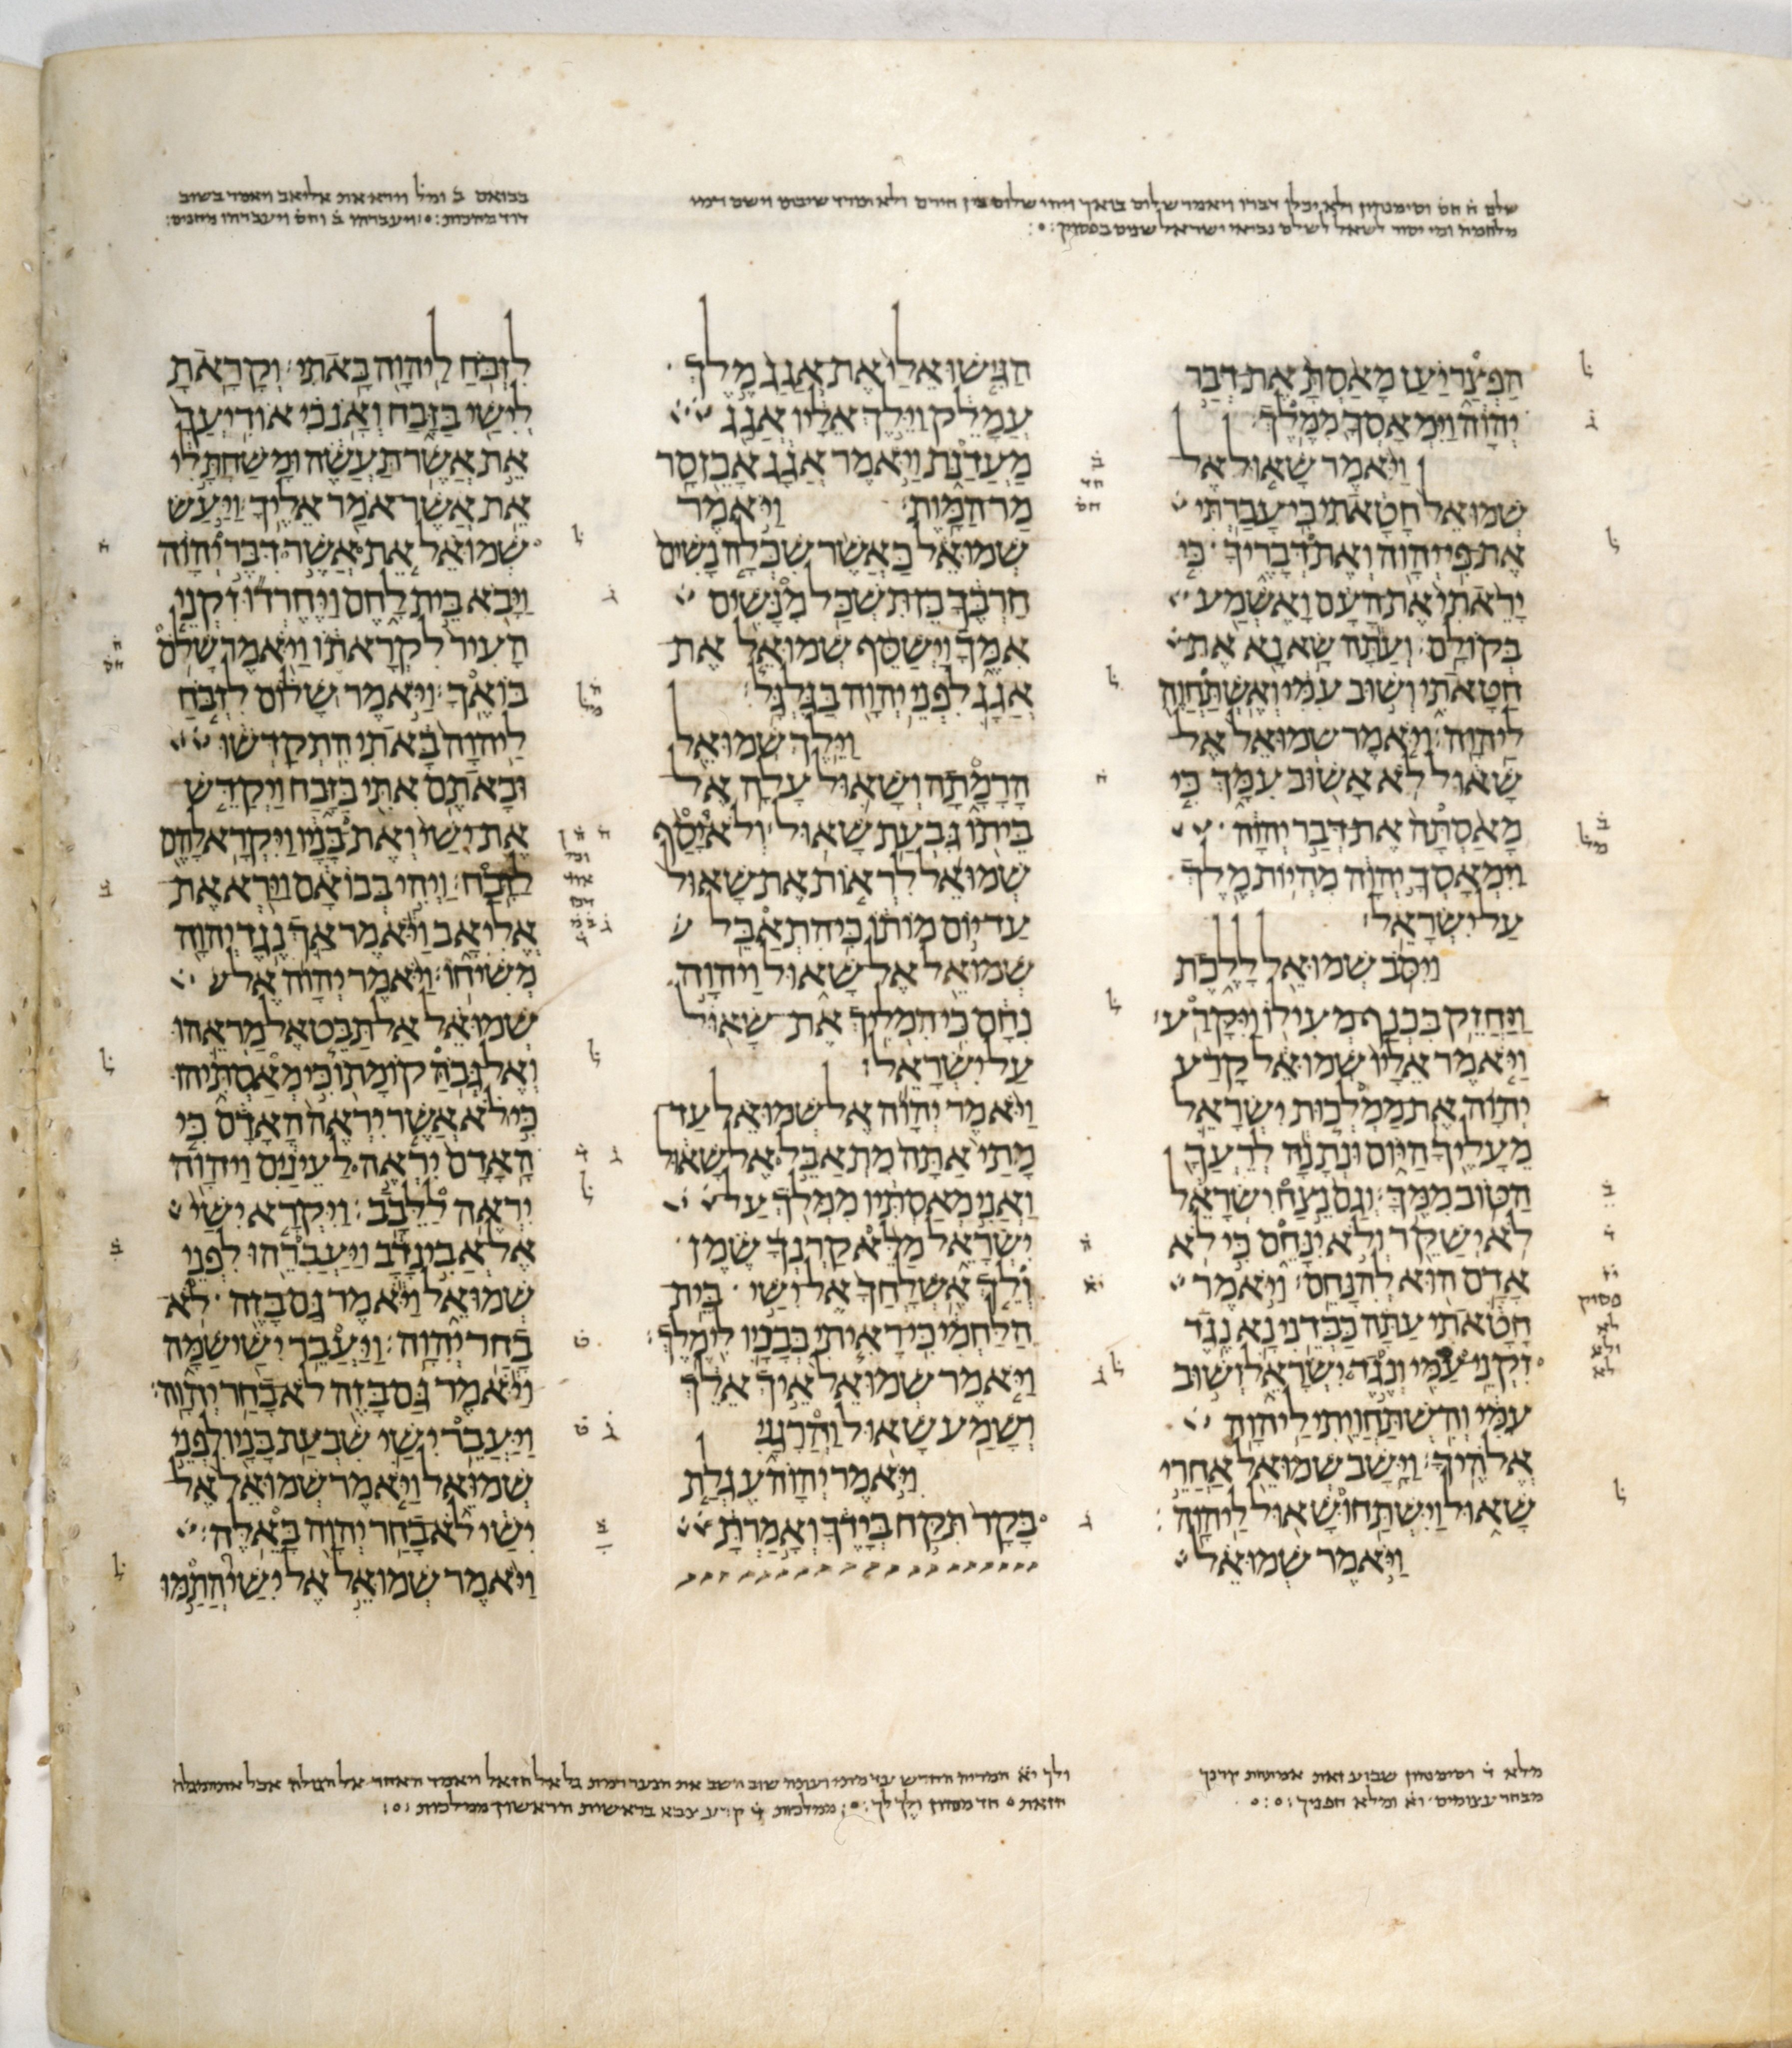 שלם ח חס וסימנהון ולא יכלו דברו ויאמר שלום בואך ויהי שלום בין חירם ולא ימדד שיבתו וישם דמי
מלחמה ומי יסוד לשאל לשלם נביאי ישראל שנים בפסוק
בבואם ב ומל וירא את אליאב ויאמר בשוב
דוד מהכות ויעברהו ב וחס ויעברהו מיהנים
הַפְצַר יַעַן מָאַסְתָּ אֶת דְּבַר
יְהוָה וַיִּמְאָסְךָ מִמֶּלֶךְ
וַיֹּאמֶר שָׁאוּל אֶל
שְׁמוּאֵל חָטָאתִי כִּי עָבַרְתִּי
אֶת פִּי יְהוָה וְאֶת דְּבָרֶיךָ כִּי
יָרֵאתִי אֶת הָעָם וָאֶשְׁמַע
בְּקוֹלָם וְעַתָּה שָׂא נָא אֶת
חַטָּאתִי וְשׁוּב עִמִּי וְאֶשְׁתַּחֲוֶה
לַיהוָה וַיֹּאמֶר שְׁמוּאֵל אֶל
שָׁאוּל לֹא אָשׁוּב עִמָּךְ כִּי
מָאַסְתָּה אֶת דְּבַר יְהוָה
וַיִּמְאָסְךָ יְהוָה מִהְיוֹת מֶלֶךְ
עַל יִשְׂרָאֵל
וַיִּסֹּב שְׁמוּאֵל לָלֶכֶת
וַיַּחֲזֵק בִּכְנַף מְעִילוֹ וַיִּקָּרַע
וַיֹּאמֶר אֵלָיו שְׁמוּאֵל קָרַע
יְהוָה אֶת מַמְלְכוּת יִשְׂרָאֵל
מֵעָלֶיךָ הַיּוֹם וּנְתָנָהּ לְרֵעֲךָ
הַטּוֹב מִמֶּךָּ וְגַם נֵצַח יִשְׂרָאֵל
לֹא יְשַׁקֵּר וְלֹא יִנָּחֵם כִּי לֹא
אָדָם הוּא לְהִנָּחֵם וַיֹּאמֶר
חָטָאתִי עַתָּה כַּבְּדֵנִי נָא נֶגֶד
זִקְנֵי עַמִּי וְנֶגֶד יִשְׂרָאֵל וְשׁוּב
עִמִּי וְהִשְׁתַּחֲוֵיתִי לַיהוָה
אֱלֹהֶיךָ וַיָּשָׁב שְׁמוּאֵל אַחֲרֵי
שָׁאוּל וַיִּשְׁתַּחוּ שָׁאוּל לַיהוָה
וַיֹּאמֶר שְׁמוּאֵל
הַגִּישׁוּ אֵלַי אֶת אֲגַג מֶלֶךְ
עֲמָלֵק וַיֵּלֶךְ אֵלָיו אֲגַג
מַעֲדַנֹּת וַיֹּאמֶר אֲגָג אָכֵן סָר
מַר הַמָּוֶת וַיֹּאמֶר
שְׁמוּאֵל כַּאֲשֶׁר שִׁכְּלָה נָשִׁים
חַרְבֶּךָ כֵּן תִּשְׁכַּל מִנָּשִׁים
אִמֶּךָ וַיְשַׁסֵּף שְׁמוּאֵל אֶת
אֲגָג לִפְנֵי יְהוָה בַּגִּלְגָּל
וַיֵּלֶךְ שְׁמוּאֵל
הָרָמָתָה וְשָׁאוּל עָלָה אֶל
בֵּיתוֹ גִּבְעַת שָׁאוּל וְלֹא יָסַף
שְׁמוּאֵל לִרְאוֹת אֶת שָׁאוּל
עַד יוֹם מוֹתוֹ כִּי הִתְאַבֵּל
שְׁמוּאֵל אֶל שָׁאוּל וַיהוָה
נִחָם כִּי הִמְלִיךְ אֶת שָׁאוּל
עַל יִשְׂרָאֵל
וַיֹּאמֶר יְהוָה אֶל שְׁמוּאֵל עַד
מָתַי אַתָּה מִתְאַבֵּל אֶל שָׁאוּל
וַאֲנִי מְאַסְתִּיו מִמְּלֹךְ עַל
יִשְׂרָאֵל מַלֵּא קַרְנְךָ שֶׁמֶן
וְלֵךְ אֶשְׁלָחֲךָ אֶל יִשַׁי בֵּית
הַלַּחְמִי כִּי רָאִיתִי בְּבָנָיו לִי מֶלֶךְ
וַיֹּאמֶר שְׁמוּאֵל אֵיךְ אֵלֵךְ
וְשָׁמַע שָׁאוּל וַהֲרָגָנִי
וַיֹּאמֶר יְהוָה עֶגְלַת
בָּקָר תִּקַּח בְּיָדֶךָ וְאָמַרְתָּ
לִזְבֹּחַ לַיהוָה בָּאתִי וְקָרָאתָ
לְיִשַׁי בַּזָּבַח וְאָנֹכִי אוֹדִיעֲךָ
אֵת אֲשֶׁר תַּעֲשֶׂה וּמָשַׁחְתָּ לִי
אֵת אֲשֶׁר אֹמַר אֵלֶיךָ וַיַּעַשׂ
שְׁמוּאֵל אֵת אֲשֶׁר דִּבֶּר יְהוָה
וַיָּבֹא בֵּית לָחֶם וַיֶּחֶרְדוּ זִקְנֵי
הָעִיר לִקְרָאתוֹ וַיֹּאמֶר שָׁלֹם
בּוֹאֶךָ וַיֹּאמֶר שָׁלוֹם לִזְבֹּחַ
לַיהוָה בָּאתִי הִתְקַדְּשׁוּ
וּבָאתֶם אִתִּי בַּזָּבַח וַיְקַדֵּשׁ
אֶת יִשַׁי וְאֶת בָּנָיו וַיִּקְרָא לָהֶם
לַזָּבַח וַיְהִי בְּבוֹאָם וַיַּרְא אֶת
אֱלִיאָב וַיֹּאמֶר אַךְ נֶגֶד יְהוָה
מְשִׁיחוֹ וַיֹּאמֶר יְהוָה אֶל
שְׁמוּאֵל אַל תַּבֵּט אֶל מַרְאֵהוּ
וְאֶל גְּבֹהַּ קוֹמָתוֹ כִּי מְאַסְתִּיהוּ
כִּי לֹא אֲשֶׁר יִרְאֶה הָאָדָם כִּי
הָאָדָם יִרְאֶה לַעֵינַיִם וַיהוָה
יִרְאֶה לַלֵּבָב וַיִּקְרָא יִשַׁי
אֶל אֲבִינָדָב וַיַּעֲבִרֵהוּ לִפְנֵי
שְׁמוּאֵל וַיֹּאמֶר גַּם בָּזֶה לֹא
בָחַר יְהוָה וַיַּעֲבֵר יִשַׁי שַׁמָּה
וַיֹּאמֶר גַּם בָּזֶה לֹא בָחַר יְהוָה
וַיַּעֲבֵר יִשַׁי שִׁבְעַת בָּנָיו לִפְנֵי
שְׁמוּאֵל וַיֹּאמֶר שְׁמוּאֵל אֶל
יִשַׁי לֹא בָחַר יְהוָה בָּאֵלֶּה
וַיֹּאמֶר שְׁמוּאֵל אֶל יִשַׁי הֲתַמּוּ
מלא ד וסימנהון שבוע זאת אמתחת קרנך
מבחר עצומים וא ומלא חפניך